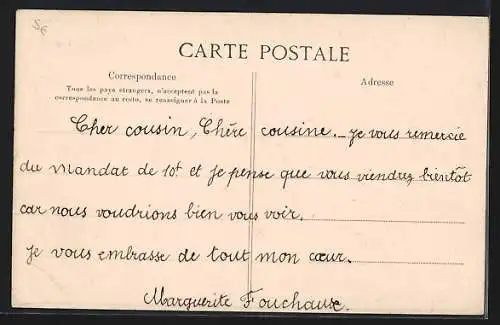 56
CARTE POSTALE
Correspondance
Adresse
Tous les pays étrangers, n'acceptent pas la
correspondance au recto, se renseigner à la Poste
Cher cousin, Chère cousine._ je vous remercie
du mandat de 10f et je pense que vous viendrez bientôt
car nous voudrions bien vous voir.
je vous embrasse de tout mon cœur.
Marguerite Fouchause.